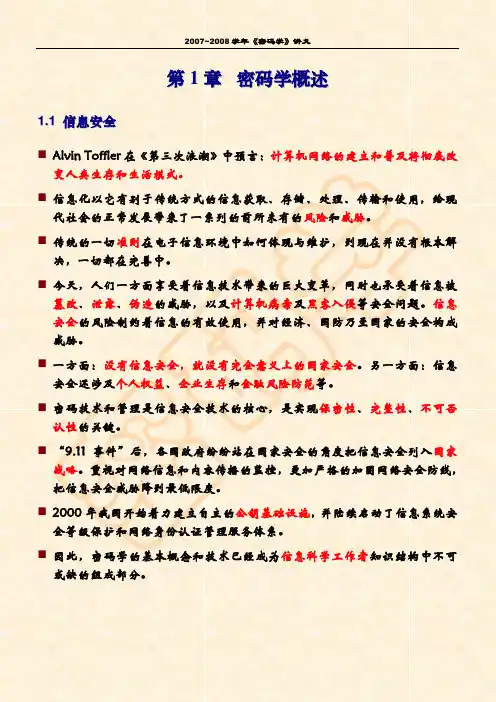 2007-2008学年《密码学》讲义
第1章 密码学概述
1.1 信息安全
■ Alvin Toffler在《第三次浪潮》中预言：计算机网络的建立和普及将彻底改
变人类生存和生活模式。
■ 信息化以它有别于传统方式的信息获取、存储、处理、传输和使用，给现
代社会的正常发展带来了一系列的前所未有的风险和威胁。
■ 传统的一切准则在电子信息环境中如何体现与维护，到现在并没有根本解
决，一切都在完善中。
■ 今天，人们一方面享受着信息技术带来的巨大变革，同时也承受着信息被
篡改、泄露、伪造的威胁，以及计算机病毒及黑客入侵等安全问题。信息
安全的风险制约着信息的有效使用，并对经济、国防乃至国家的安全构成
威胁。
■ 一方面：没有信息安全，就没有完全意义上的国家安全。另一方面：信息
安全还涉及个人权益、企业生存和金融风险防范等。
■ 密码技术和管理是信息安全技术的核心，是实现保密性、完整性、不可否
认性的关键。
■ “9.11 事件”后，各国政府纷纷站在国家安全的角度把信息安全列入国家
战略。重视对网络信息和内容传播的监控，更加严格的加固网络安全防线，
把信息安全威胁降到最低限度。
■ 2000年我国开始着力建立自主的公钥基础设施，并陆续启动了信息系统安
全等级保护和网络身份认证管理服务体系。
■ 因此，密码学的基本概念和技术已经成为信息科学工作者知识结构中不可
或缺的组成部分。